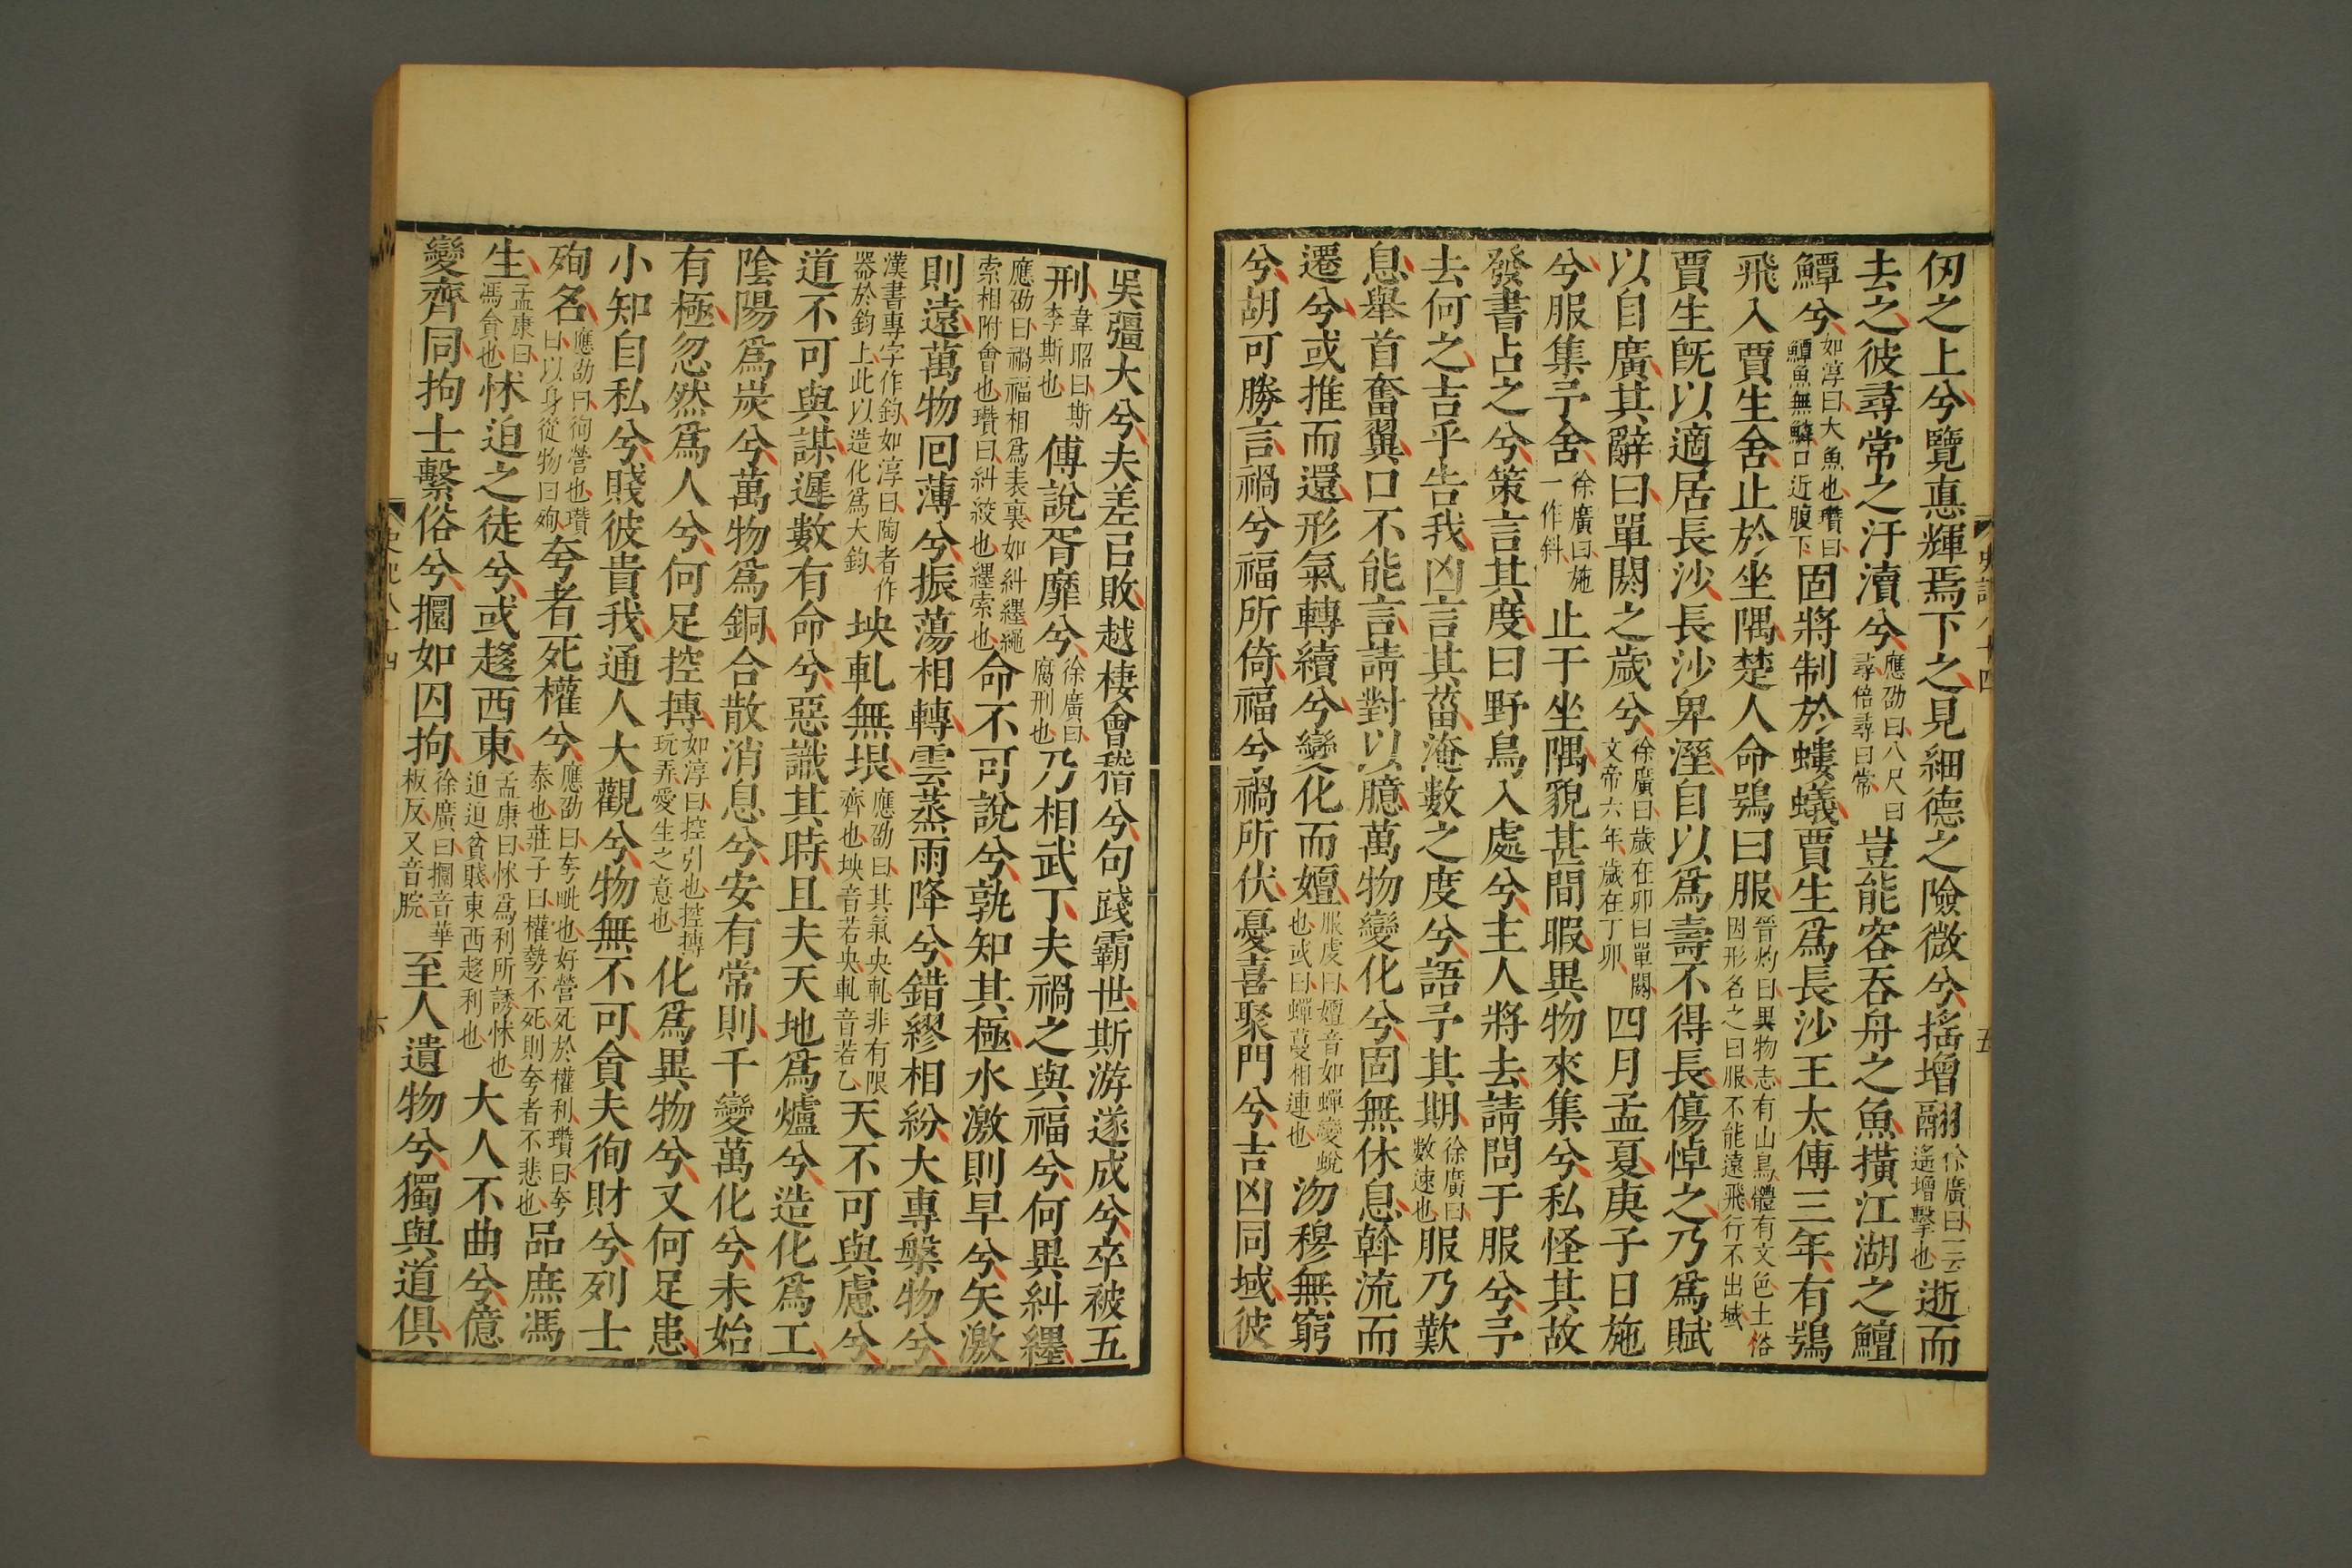 仞之上兮覽悳輝焉下之見細德之險微兮搖增翮徐廣曰一云遙增擊也逝而
去之彼尋常之汙瀆兮應劭曰八尺曰尋倍尋曰常豈能容吞舟之魚橫江湖之鱣
鱏兮如淳曰大魚也瓚曰鱏魚無鱗口近腹下固將制於螻蟻賈生爲長沙王太傅三年有鴞
飛入賈生舍止於坐隅楚人命鴞曰服晉灼曰異物志有山鳥體有文色土俗因形名之曰服不能遠飛行不出域
賈生旣以適居長沙長沙卑溼自以爲壽不得長傷悼之乃爲賦
以自廣其辭曰單閼之歲兮徐廣曰歲在卯曰單閼文帝六年歲在丁卯四月孟夏庚子日施
兮服集予舍徐廣曰施一作斜止于坐隅貌甚閒暇異物來集兮私怪其故
發書占之兮策言其度曰野鳥入處兮主人將去請問于服兮予
去何之吉乎告我凶言其菑淹數之度兮語予其期徐廣曰數速也服乃歎
息舉首奮翼口不能言請對以臆萬物變化兮固無休息斡流而
遷兮或推而還形氣轉續兮變化而嬗服虔曰嬗音如蟬變蛻也或曰蟬蔓相連也沕穆無窮
兮胡可勝言禍兮福所倚福兮禍所伏憂喜聚門兮吉凶同域彼
史記八十四
五
吳彊大兮夫差㠯敗越棲會稽兮句踐霸世斯游遂成兮卒被五
刑韋昭曰斯李斯也傅說胥靡兮徐廣曰腐刑也乃相武丁夫禍之與福兮何異糾纆
應劭曰禍福相爲表裏如糾纆繩索相附會也瓚曰糾絞也纆索也命不可說兮孰知其極水激則旱兮矢激
則遠萬物回薄兮振蕩相轉雲蒸雨降兮錯繆相紛大專槃物兮
漢書專字作鈞如淳曰陶者作器於鈞上此以造化爲大鈞坱軋無垠應劭曰其氣坱軋非有限齊也坱音若央軋音若乙天不可與慮兮
道不可與謀遲數有命兮惡識其時且夫天地爲爐兮造化爲工
陰陽爲炭兮萬物爲銅合散消息兮安有常則千變萬化兮未始
有極忽然爲人兮何足控摶如淳曰控引也控摶玩弄愛生之意也化爲異物兮又何足患
小知自私兮賤彼貴我通人大觀兮物無不可貪夫徇財兮列士
殉名應劭曰徇營也瓚曰以身從物曰殉夸者死權兮應劭曰夸毗也好營死於權利瓚曰夸泰也莊子曰權勢不死則夸者不悲也品庶馮
生孟康曰馮貪也怵迫之徒兮或趍西東孟康曰怵爲利所誘怵也迫迫貧賤東西趍利也大人不曲兮億
變齊同拘士繫俗兮攌如囚拘徐廣曰攌音華板反又音脘至人遺物兮獨與道俱
史記八十四
六